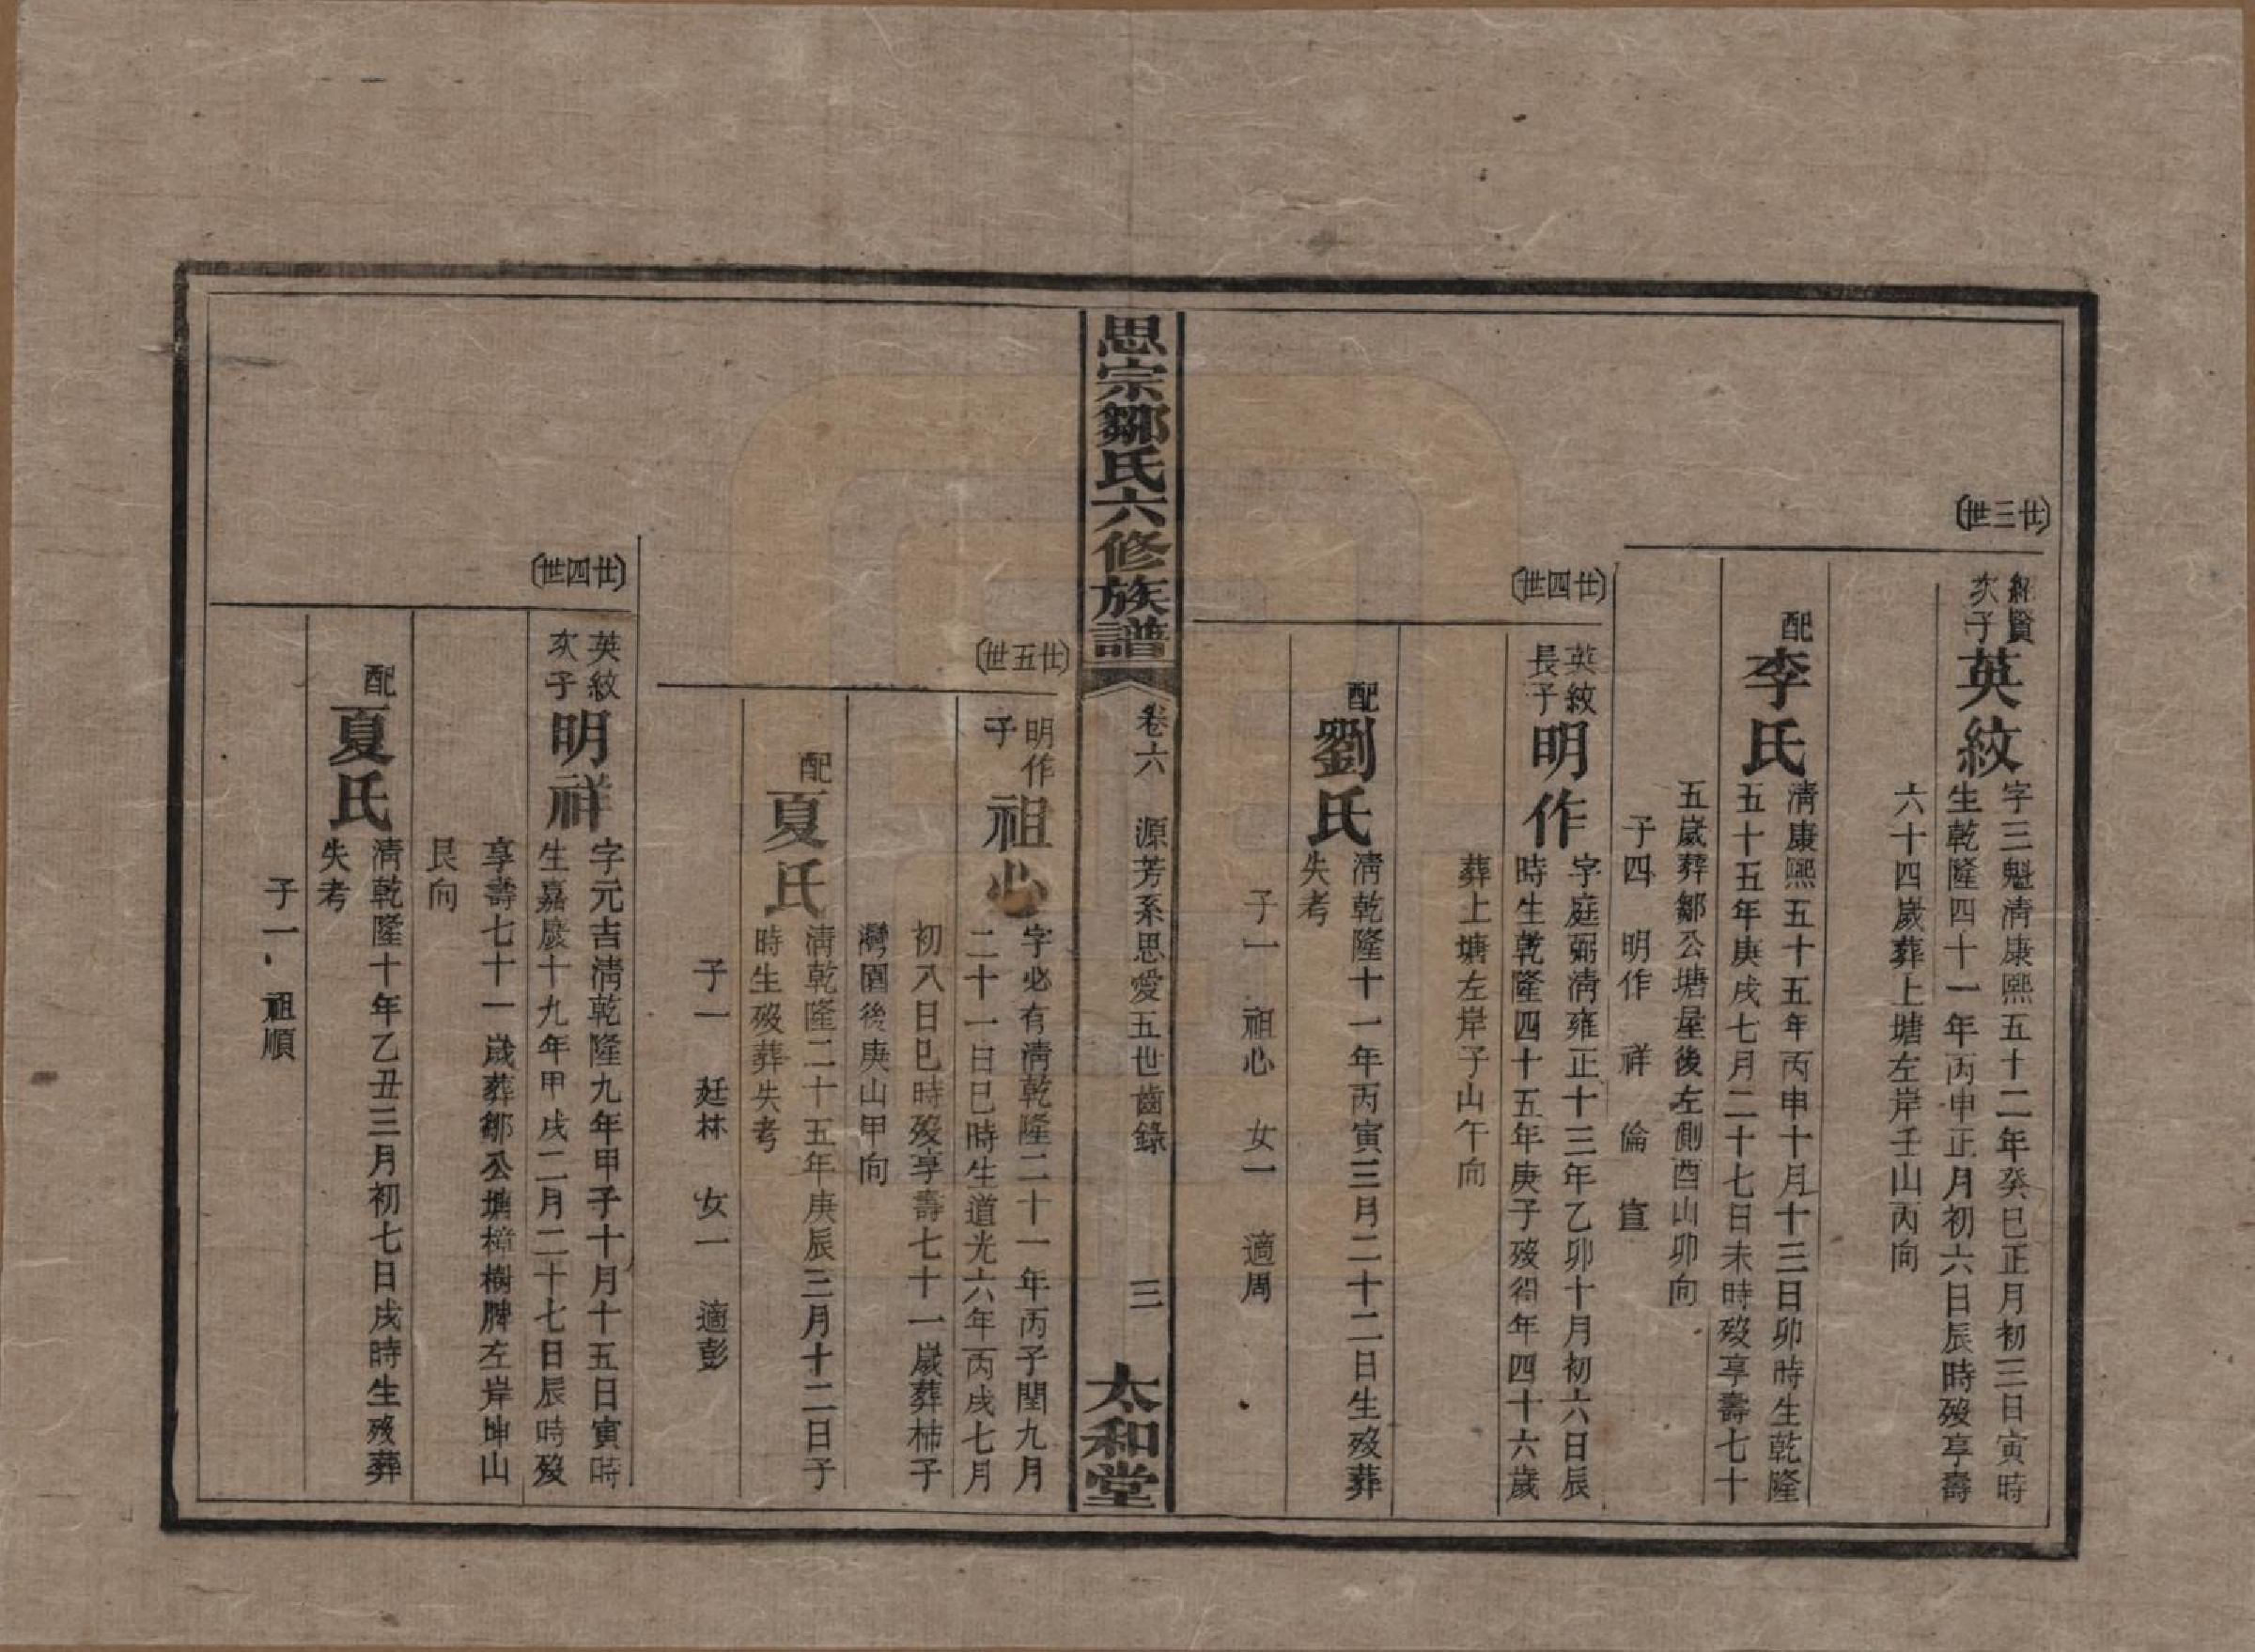 廿三世
紹賢次子
英紋
字三魁淸康熙五十二年癸巳正月初三日寅時
生乾隆四十一年丙申正月初六日辰時歿享壽
六十四歲葬上塘左岸壬山丙向
配
李氏
淸康熙五十五年丙申十月十三日卯時生乾隆
五十五年庚戌七月二十七日未時歿享壽七十
五歲葬鄒公塘屋後左側酉山卯向
子四 明作 祥 倫 宣
廿四世
英紋長子
明作
字庭弼淸雍正十三年乙卯十月初六日辰
時生乾隆四十五年庚子歿得年四十六歲
葬上塘左岸子山午向
配
劉氏
淸乾隆十一年丙寅三月二十二日生歿葬
失考
子一 祖心 女一 適周
思宗鄒氏六修族譜
卷六 源芳系思愛五世齒錄
三
太和堂
廿五世
明作子
祖心
字必有淸乾隆二十一年丙子閏九月
二十一日巳時生道光六年丙戌七月
初八日巳時歿享壽七十一歲葬柿子
灣園後庚山甲向
配
夏氏
淸乾隆二十五年庚辰三月十二日子
時生歿葬失考
子一 廷林 女一 適彭
廿四世
英紋次子
明祥
字元吉淸乾隆九年甲子十月十五日寅時
生嘉慶十九年甲戌二月二十七日辰時歿
享壽七十一歲葬鄒公塘樟樹脾左岸坤山
艮向
配
夏氏
淸乾隆十年乙丑三月初七日戌時生歿葬
失考
子一 祖順